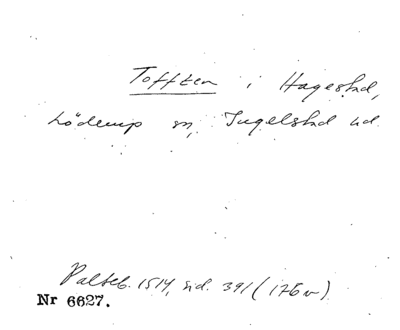 Tofften i Hagestad,
Löderup sn, Ingelstad hd.
Palteb. 1514, sid. 391 (176 v)
Nr 6627.